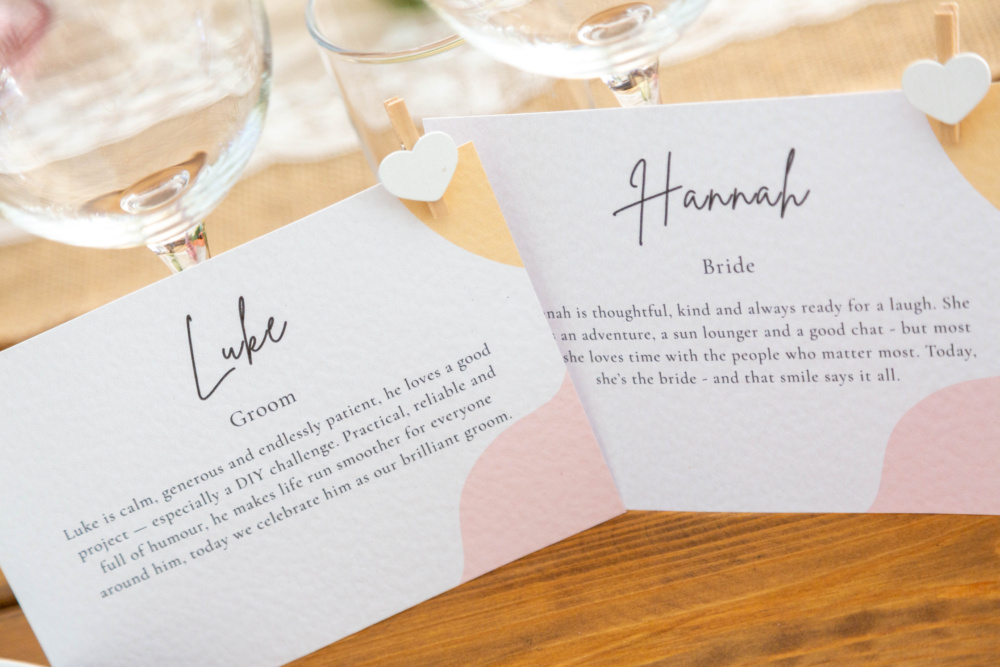 Luke
Groom
Luke is calm, generous and endlessly patient, he loves a good
project — especially a DIY challenge. Practical, reliable and
full of humour, he makes life run smoother for everyone
around him, today we celebrate him as our brilliant groom.
Hannah
Bride
nah is thoughtful, kind and always ready for a laugh. She
an adventure, a sun lounger and a good chat - but most
she loves time with the people who matter most. Today,
she's the bride - and that smile says it all.